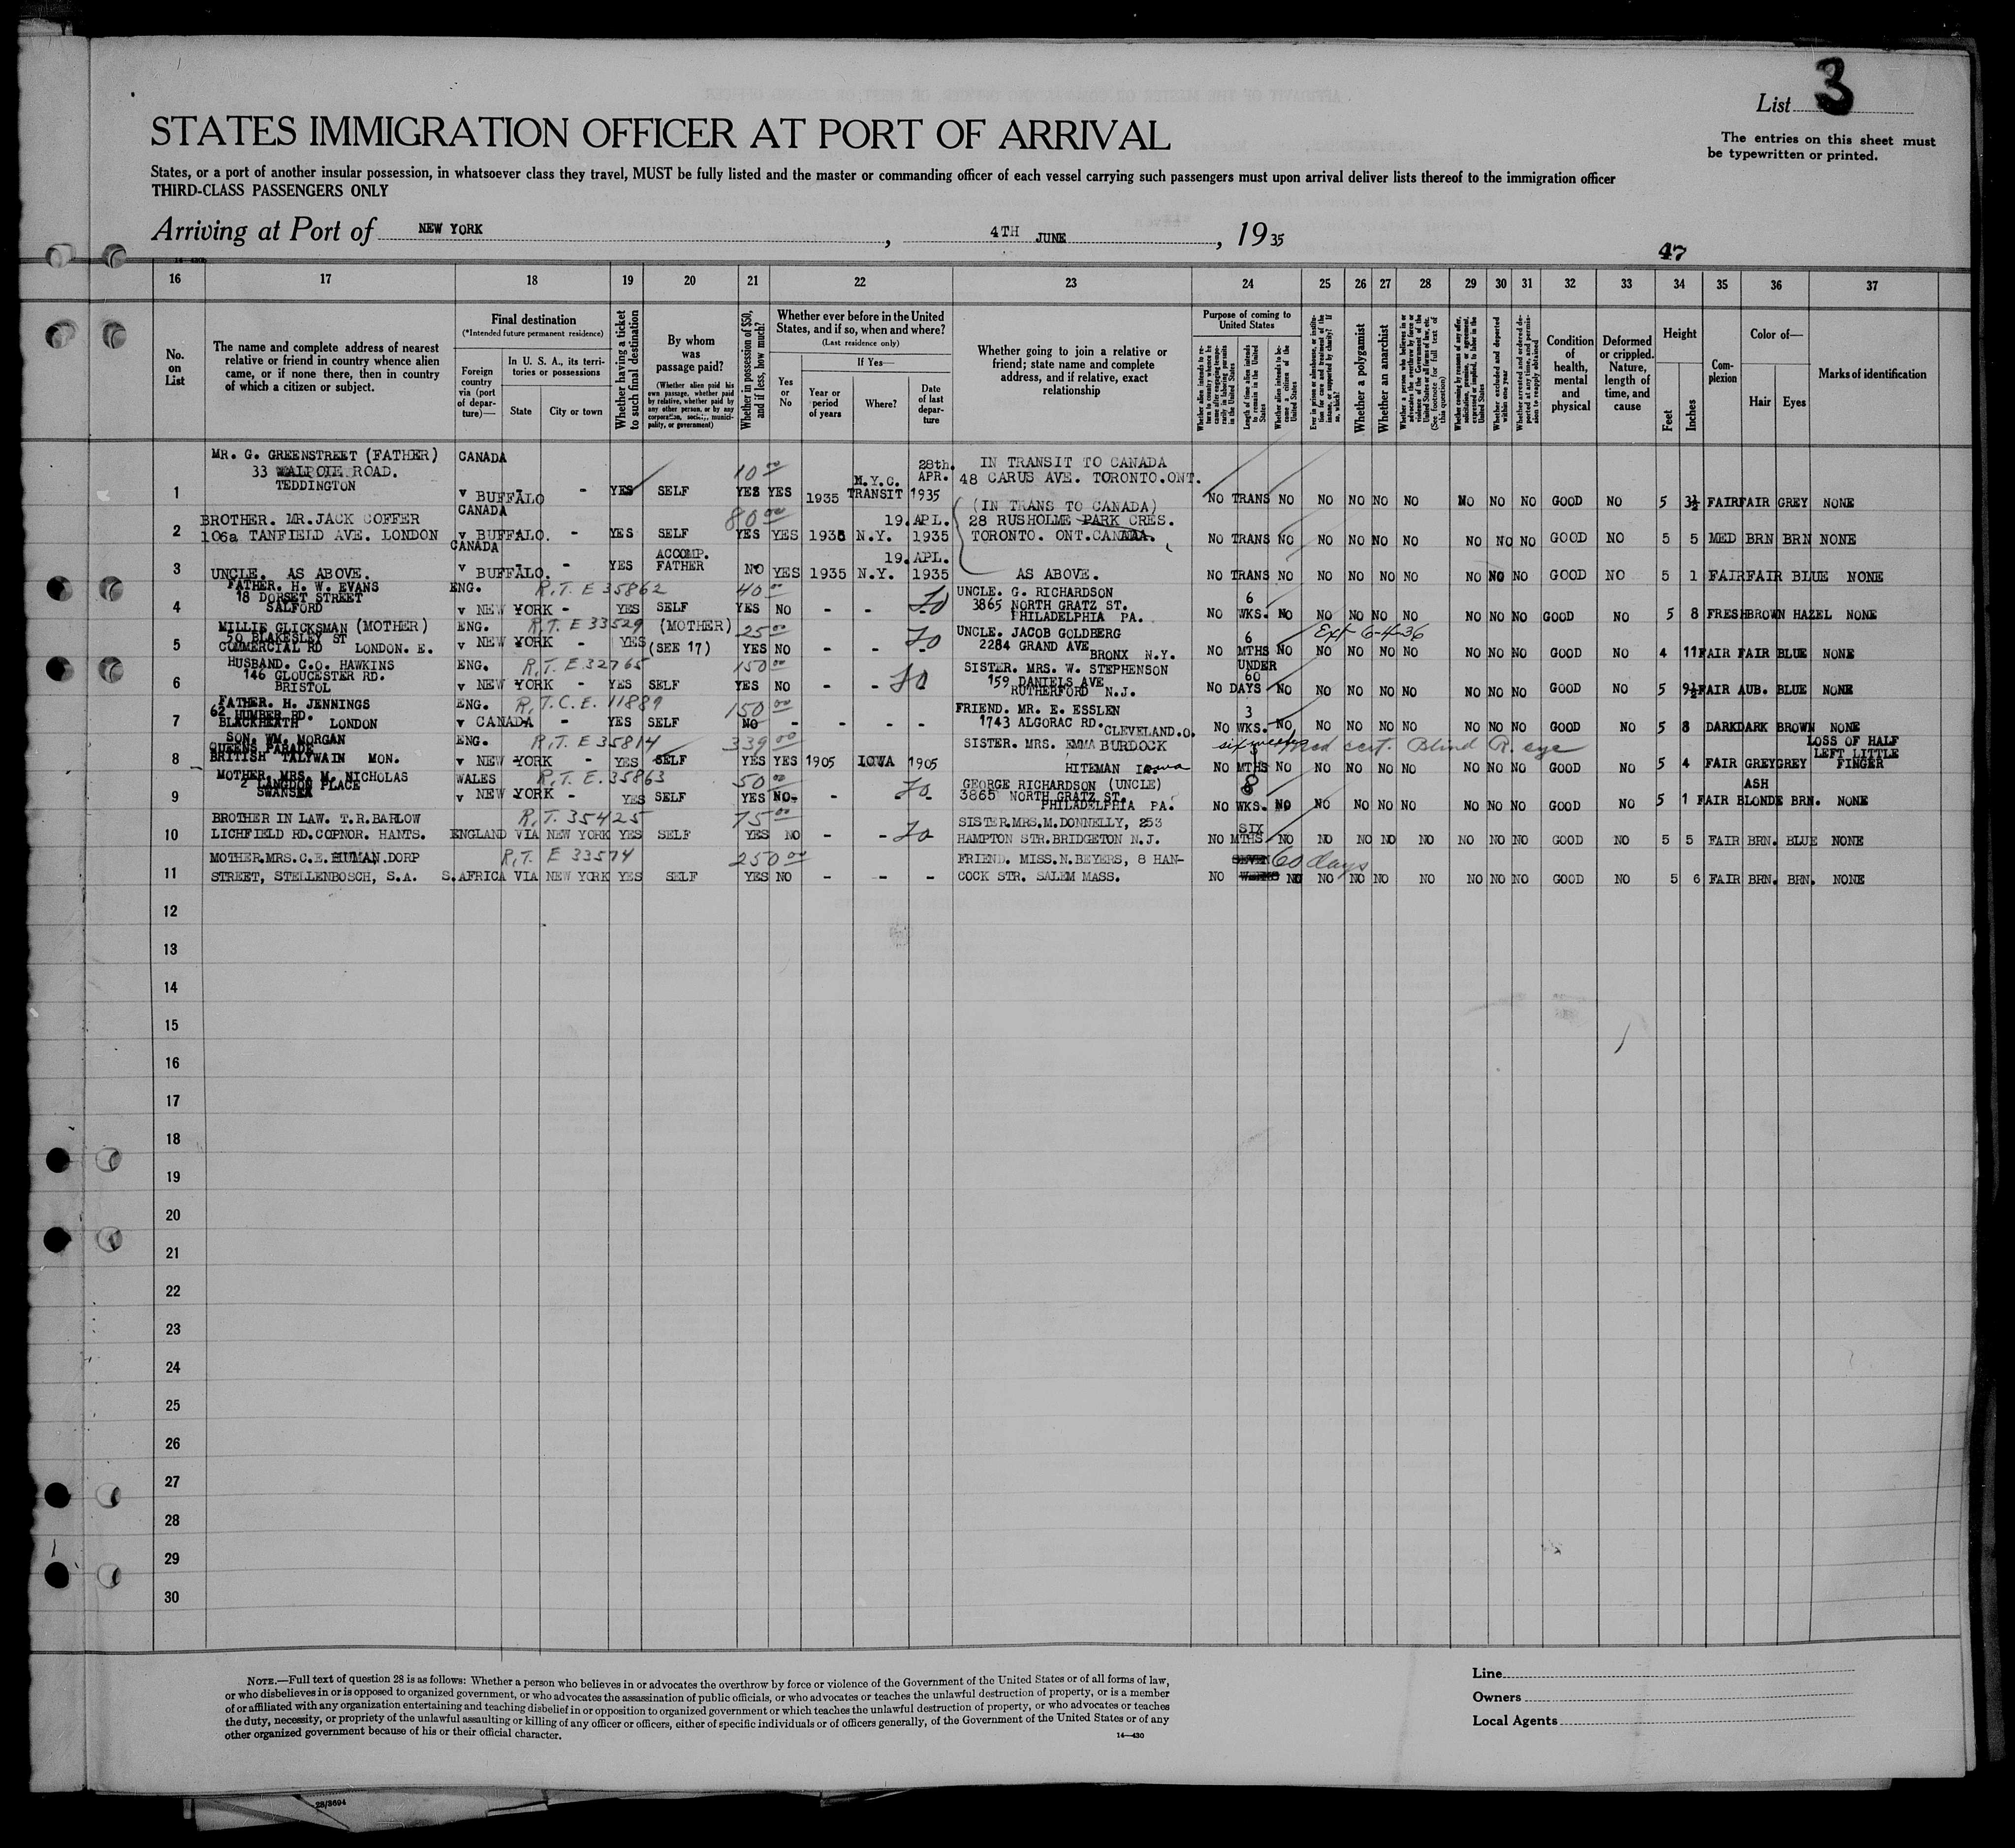 List 3
The entries on this sheet must
be typewritten or printed.
STATES IMMIGRATION OFFICER AT PORT OF ARRIVAL
States, or a port of another insular possession, in whatsoever class they travel, MUST be fully listed and the master or commanding officer of each vessel carrying such passengers must upon arrival deliver lists thereof to the immigration officer
THIRD-CLASS PASSENGERS ONLY
Arriving at Port of NEW YORK , 4TH JUNE , 1935
47
16 17 18 19 20 21 22 23 24 25 26 27 28 29 30 31 32 33 34 35 36 37
No. on List
The name and complete address of nearest relative or friend in country whence alien came, or if none there, then in country of which a citizen or subject.
Final destination
(*Intended future permanent residence)
Foreign country via (port of departure)—
In U. S. A., its territories or possessions
State
City or town
Whether having a ticket to such final destination
By whom was passage paid?
(Whether alien paid his own passage, whether paid by relative, whether paid by any other person, or by any corporation, society, municipality, or government)
Whether in possession of $50, and if less, how much?
Whether ever before in the United States, and if so, when and where?
(Last residence only)
Yes or No
If Yes—
Year or period of years
Where?
Date of last departure
Whether going to join a relative or friend; state name and complete address, and if relative, exact relationship
Purpose of coming to United States
Whether alien intends to return to country whence he came after engaging temporarily in laboring pursuits in the United States
Length of time alien intends to remain in the United States
Whether alien intends to become a citizen of the United States
Ever in prison or almshouse, or institution for care and treatment of the insane, or supported by charity? If so, which?
Whether a polygamist
Whether an anarchist
(See footnote for full text of this question)
Whether excluded and deported within one year
Condition of health, mental and physical
Deformed or crippled. Nature, length of time, and cause
Height
Feet
Inches
Complexion
Color of—
Hair
Eyes
Marks of identification
MR. G. GREENSTREET (FATHER) CANADA 10 00 28th. IN TRANSIT TO CANADA
33 WALPOLE ROAD. N.Y.C. APR. 48 CARUS AVE. TORONTO.ONT.
TEDDINGTON
1 v BUFFALO - YES SELF YES YES 1935 TRANSIT 1935 NO TRANS NO NO NO NO NO NO NO NO GOOD NO 5 3½ FAIR FAIR GREY NONE
CANADA 80 00 (IN TRANS TO CANADA)
BROTHER. MR.JACK COFFER 19.APL. 28 RUSHOLME PARK CRES.
2 106a TANFIELD AVE. LONDON v BUFFALO. - YES SELF YES YES 1935 N.Y. 1935 TORONTO. ONT.CANADA. NO TRANS NO NO NO NO NO NO NO NO GOOD NO 5 5 MED BRN BRN NONE
CANADA ACCOMP. 19.APL.
3 UNCLE. AS ABOVE. v BUFFALO. - YES FATHER NO YES 1935 N.Y. 1935 AS ABOVE. NO TRANS NO NO NO NO NO NO NO NO GOOD NO 5 1 FAIR FAIR BLUE NONE
FATHER. H. W. EVANS ENG. R.T. E 35862 40 00 UNCLE. G. RICHARDSON
18 DORSET STREET 3865 NORTH GRATZ ST. 6
4 SALFORD v NEW YORK - YES SELF YES NO - - PHILADELPHIA PA. NO WKS. NO NO NO NO NO NO NO NO GOOD NO 5 8 FRESH BROWN HAZEL NONE
MILLIE GLICKSMAN (MOTHER) ENG. R.T. E 33529 (MOTHER) 25 00 UNCLE. JACOB GOLDBERG Ext 6-4-36
50 BLAKESLEY ST 2284 GRAND AVE 6
5 COMMERCIAL RD LONDON. E. v NEW YORK - YES (SEE 17) YES NO - - BRONX N.Y. NO MTHS NO NO NO NO NO NO NO NO GOOD NO 4 11 FAIR FAIR BLUE NONE
HUSBAND. C.O. HAWKINS ENG. R.T. E 32765 150 00 SISTER. MRS. W. STEPHENSON UNDER
146 GLOUCESTER RD. 159 DANIELS AVE 60
6 BRISTOL v NEW YORK - YES SELF YES NO - - RUTHERFORD N.J. NO DAYS NO NO NO NO NO NO NO NO GOOD NO 5 9½ FAIR AUB. BLUE NONE
FATHER. H. JENNINGS ENG. R.T.C.E. 11889 150 00 FRIEND. MR. E. ESSLEN
62 HUMBER RD. 1743 ALGORAC RD. 3
7 BLACKHEATH LONDON v CANADA - YES SELF NO - - - - CLEVELAND.O. NO WKS. NO NO NO NO NO NO NO NO GOOD NO 5 8 DARK DARK BROWN NONE
SON. WM. MORGAN ENG. R.T. E 35814 339 00 SISTER. MRS. EMMA BURDOCK six months Med cert. Blind R. eye LOSS OF HALF
QUEENS PARADE LEFT LITTLE
8 BRITISH TALYWAIN MON. v NEW YORK - YES SELF YES YES 1905 IOWA 1905 HITEMAN Iowa NO MTHS NO NO NO NO NO NO NO NO GOOD NO 5 4 FAIR GREY GREY FINGER
MOTHER. MRS. M. NICHOLAS WALES R.T. E. 35863 50 00 GEORGE RICHARDSON (UNCLE) 8 ASH
2 LANGDON PLACE 3865 NORTH GRATZ ST.
9 SWANSEA v NEW YORK - YES SELF YES NO - - PHILADELPHIA PA. NO WKS. NO NO NO NO NO NO NO NO GOOD NO 5 1 FAIR BLONDE BRN. NONE
BROTHER IN LAW. T.R.BARLOW R.T. 35425 75 00 SISTER.MRS.M.DONNELLY, 253 SIX
10 LICHFIELD RD.COPNOR. HANTS. ENGLAND VIA NEW YORK YES SELF YES NO - - HAMPTON STR.BRIDGETON N.J. NO MTHS NO NO NO NO NO NO NO NO GOOD NO 5 5 FAIR BRN. BLUE NONE
MOTHER.MRS.C.E.HUMAN.DORP R.T. E 33574 250 00 FRIEND. MISS.N.BEYERS, 8 HAN- 60 days
11 STREET, STELLENBOSCH, S.A. S.AFRICA VIA NEW YORK YES SELF YES NO - - - COCK STR. SALEM MASS. NO NO NO NO NO NO NO NO NO GOOD NO 5 6 FAIR BRN. BRN. NONE
12
13
14
15
16
17
18
19
20
21
22
23
24
25
26
27
28
29
30
NOTE.—Full text of question 28 is as follows: Whether a person who believes in or advocates the overthrow by force or violence of the Government of the United States or of all forms of law,
or who disbelieves in or is opposed to organized government, or who advocates the assassination of public officials, or who advocates or teaches the unlawful destruction of property, or is a member
of or affiliated with any organization entertaining and teaching disbelief in or opposition to organized government or which teaches the unlawful destruction of property, or who advocates or teaches
the duty, necessity, or propriety of the unlawful assaulting or killing of any officer or officers, either of specific individuals or of officers generally, of the Government of the United States or of any
other organized government because of his or their official character.
14—430
Line
Owners
Local Agents
28/3694